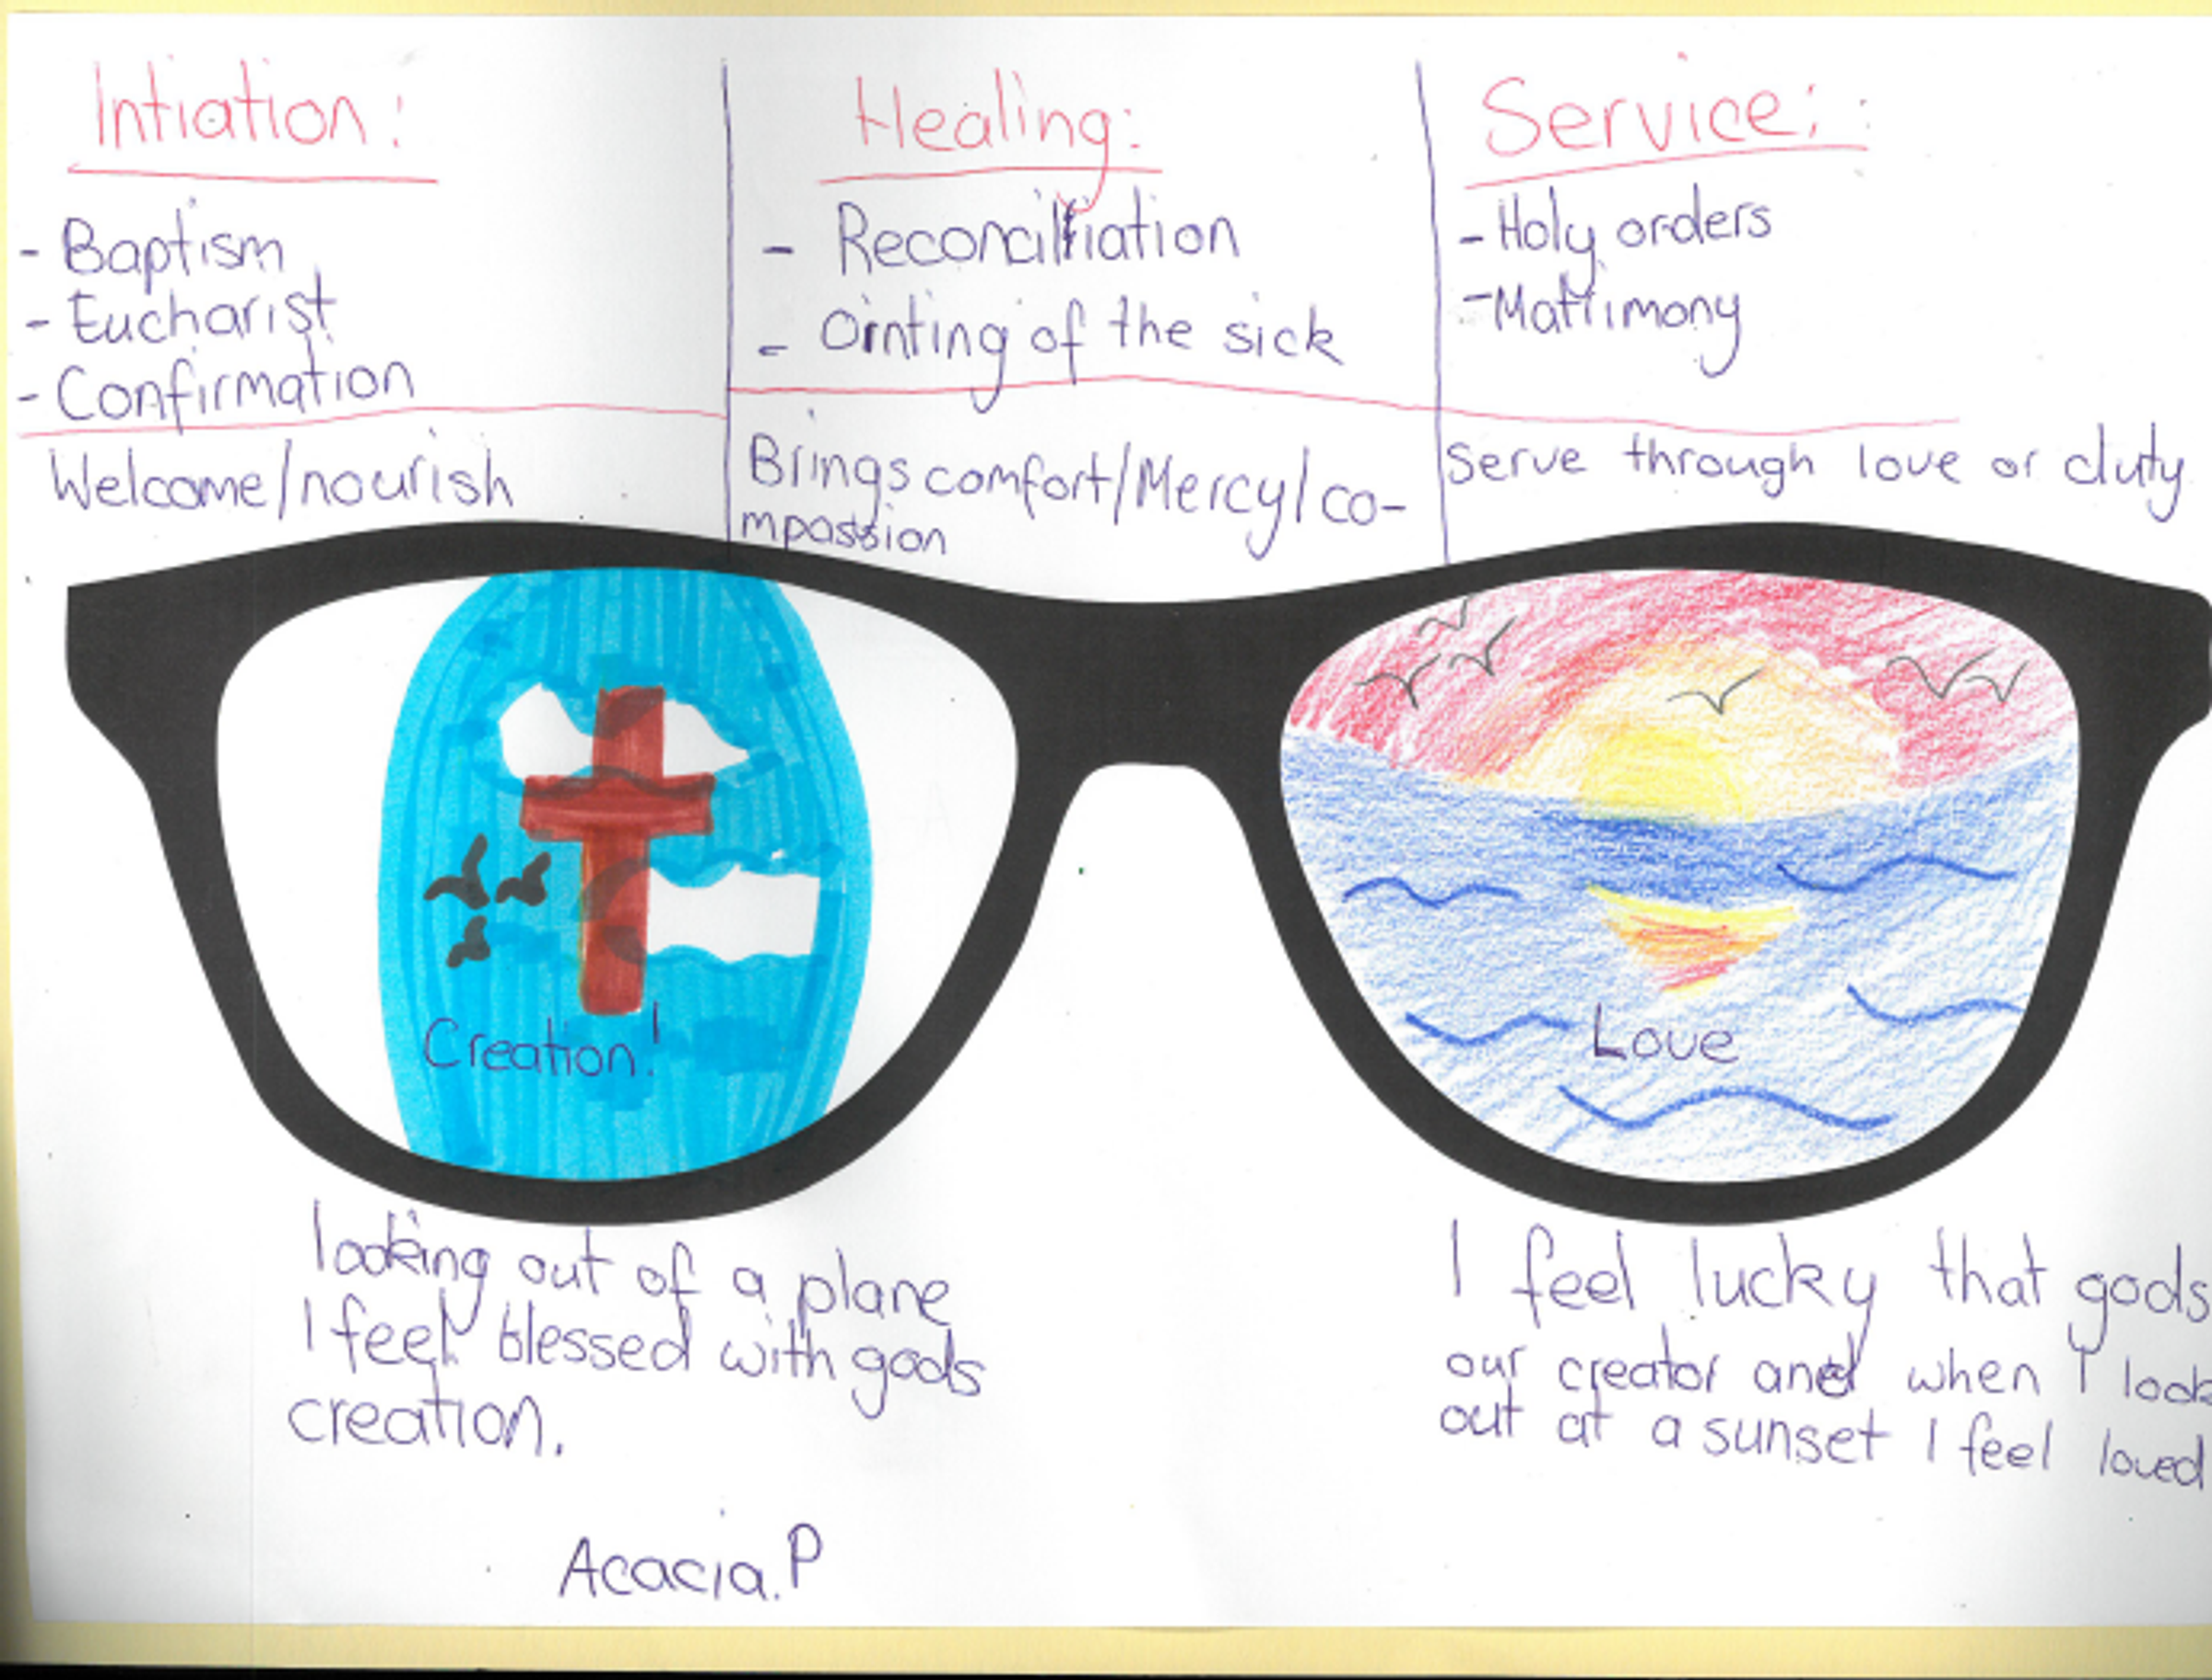 Intiation:
- Baptism
- Eucharist
- Confirmation
Welcome/nourish
Healing:
- Reconciliation
- Ointing of the sick
Brings comfort/Mercy/co-
mpassion
Service:
- Holy orders
- Matrimony
serve through love or duty
Creation!
Love
looking out of a plane
I feel blessed with gods
creation.
I feel lucky that gods
our creator and when I look
out at a sunset I feel loved
Acacia.P